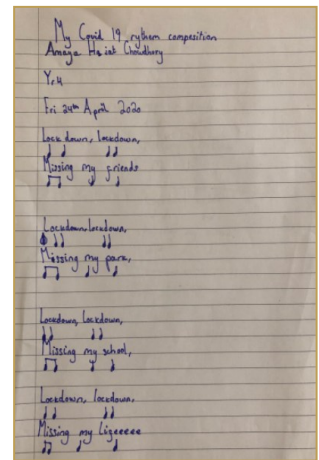 My Covid 19 rythem composition
Amaya Choudhory
Yr4
Fri 24th April 2020
Lock down, lockdown,
Missing my friends
Lockdown, lockdown,
Missing my park,
Lockdown, Lockdown,
Missing my school,
Lockdown, lockdown,
Missing my